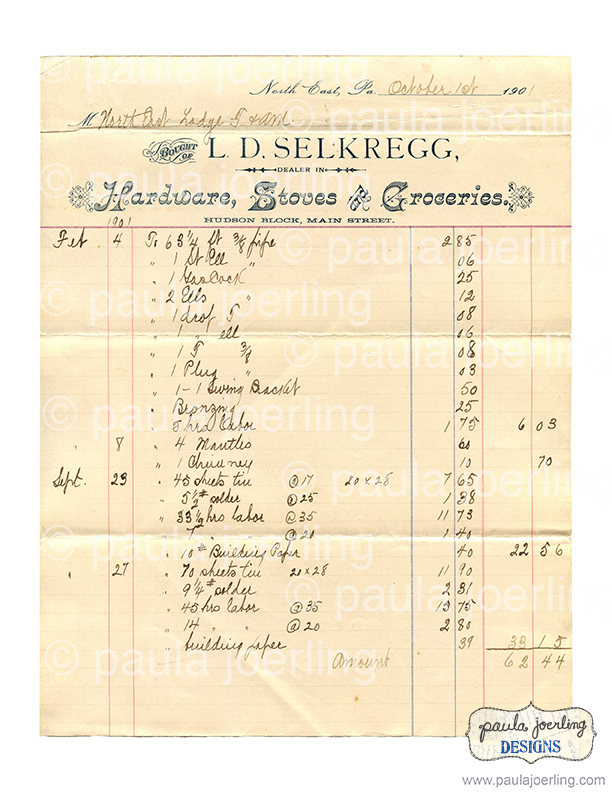 North East, Pa. October 1st 1901
M North East Lodge F & AM
BOUGHT OF L. D. SELKREGG,
DEALER IN
Hardware, Stoves and Groceries.
HUDSON BLOCK, MAIN STREET.
1901
Feb 4 To 63 1/4 ft 3/8 pipe 2 85
" 1 St Ell " 06
" 1 Gas Cock " 25
" 2 Ells " 12
" 1 drop T 08
" 1 " ell 06
" 1 T 3/8 08
" 1 Plug " 03
" 1-1 Swing Bracket 50
" Bronzing 25
" 5 hrs labor 1 75 6 03
" 8 " 4 Mantles 60
" 1 Chimney 10 70
Sept. 23 " 45 sheets tin @ 17 20 x 28 7 65
" 5 1/2 # solder @ 25 1 38
" 33 1/2 hrs labor @ 35 11 73
" 7 " " @ 20 1 40
" 10 # Building Paper 40 22 56
" 27 " 70 sheets tin 20 x 28 11 90
" 9 1/4 # solder 2 31
" 45 hrs labor @ 35 15 75
" 14 " " @ 20 2 80
" building paper 39 33 15
Amount 62 44
© paula joerling
paula joerling
DESIGNS
www.paulajoerling.com